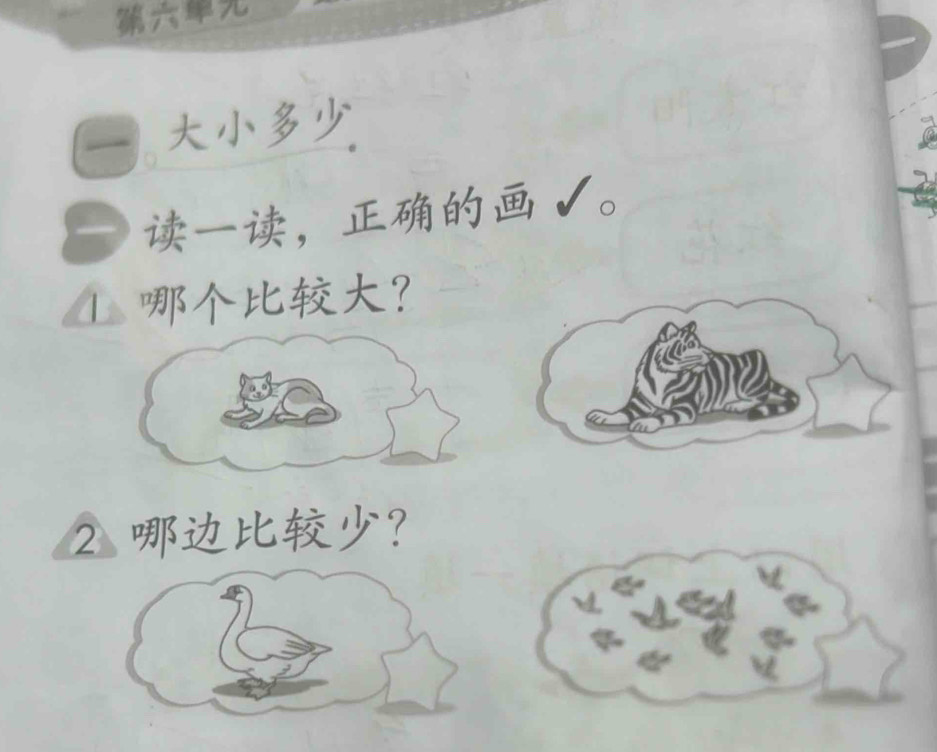 第六单元
一 大小多少
一 读一读，正确的画✓。
1 哪个比较大？
2 哪边比较少？